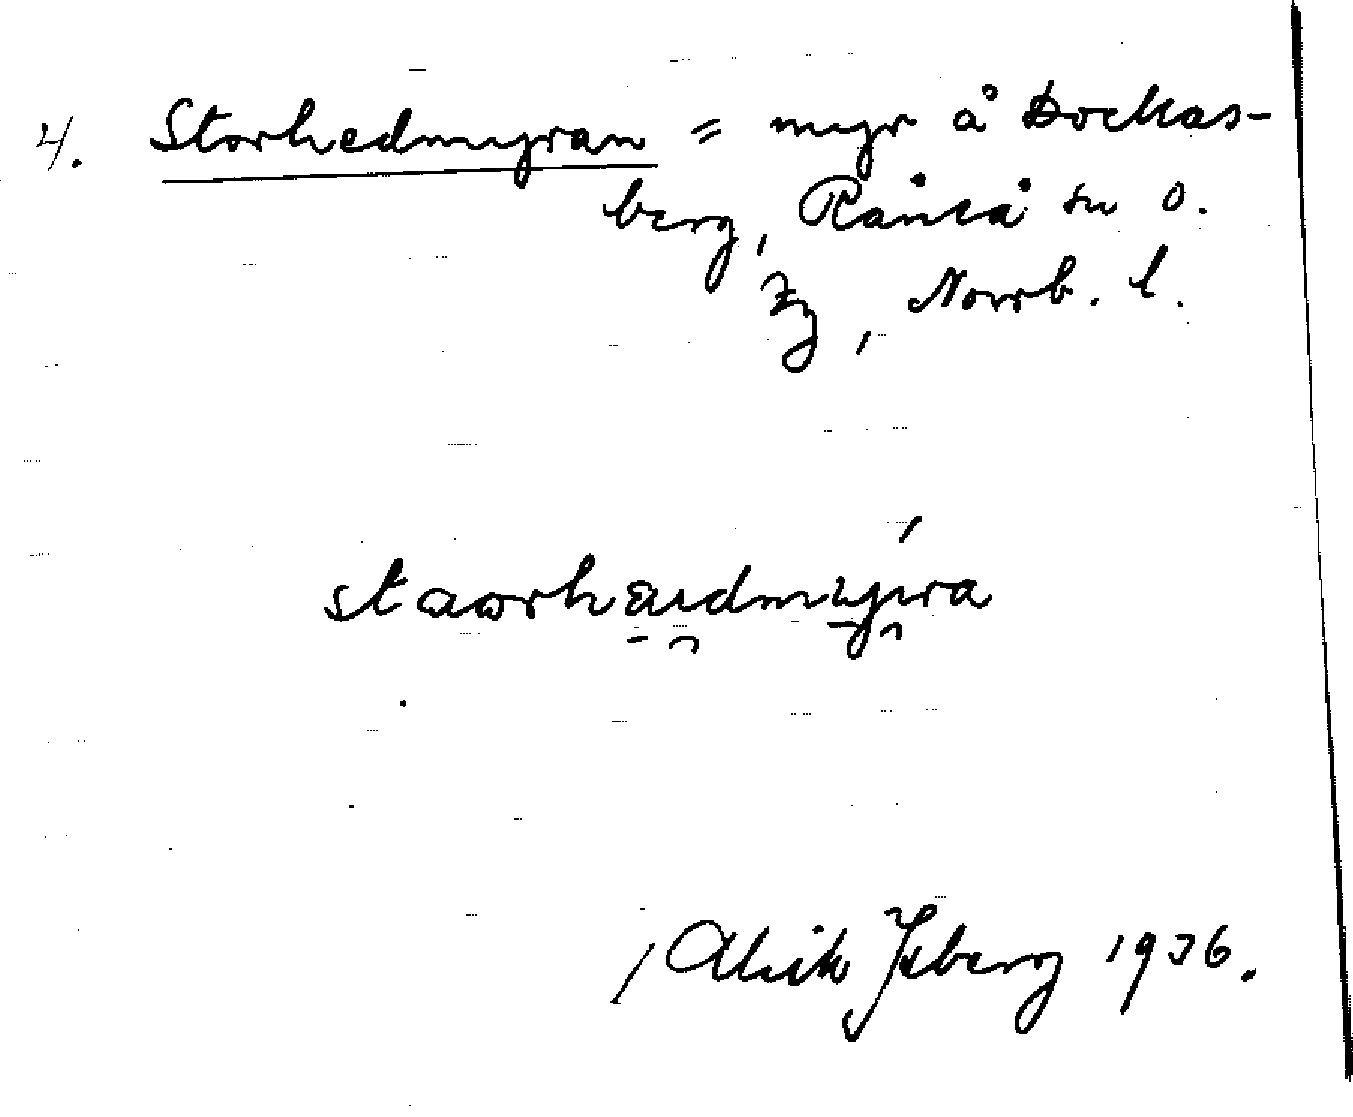 4. Storhedmyran = myr å Dockas-
berg, Råneå sn o.
tg, Norrb. l.
staorhaidmyira
/ Alrik Isberg 1936.